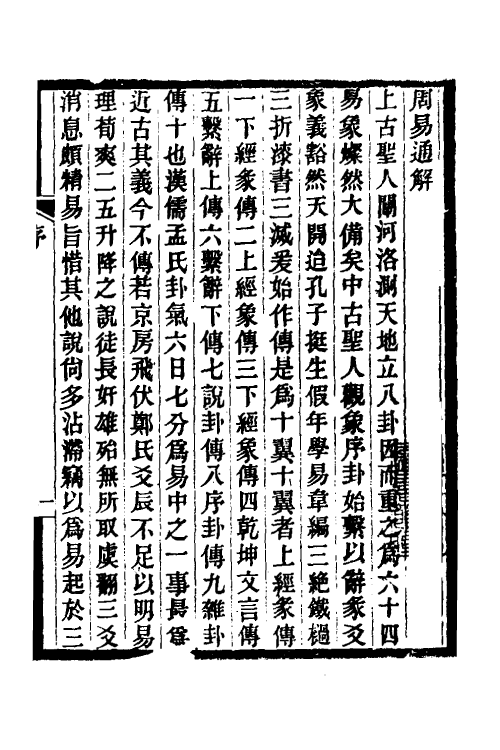 周易通解
上古聖人闡河洛測天地立八卦因而重之為六十四
易象燦然大備矣中古聖人觀象序卦始繫以辭彖爻
象義豁然天開迨孔子挺生假年學易韋編三絕鐵檛
三折漆書三滅爰始作傳是為十翼十翼者上經彖傳
一下經彖傳二上經象傳三下經象傳四乾坤文言傳
五繫辭上傳六繫辭下傳七說卦傳八序卦傳九雜卦
傳十也漢儒孟氏卦氣六日七分為易中之一事最為
近古其義今不傳若京房飛伏鄭氏爻辰不足以明易
理荀爽二五升降之說徒長奸雄殆無所取虞翻三爻
消息頗精易旨惜其他說尙多沾滯竊以為易起於三
序
一